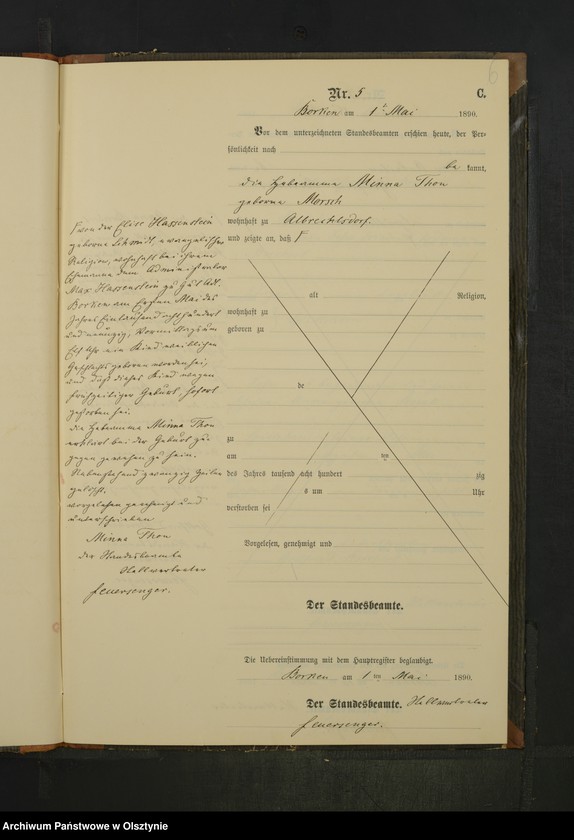 6
Nr. 5
C.
Borken am 1t Mai 1890.
Vor dem unterzeichneten Standesbeamten erschien heute, der Per-
sönlichkeit nach
be kannt,
die Hebeamme Minna Thon
geborne Morsch
wohnhaft zu Albrechtsdorf.
und zeigte an, daß
alt Religion,
wohnhaft zu
geboren zu
de
zu
am ten
des Jahres tausend acht hundert zig
s um Uhr
verstorben sei
Vorgelesen, genehmigt und
Der Standesbeamte.
von der Elise Hassenstein
geborne Schmidt, evangelischer
Religion, wohnhaft bei ihrem
Ehemanne dem Administrator
Max Hassenstein zu Gut Adl.
Borken am Ersten Mai des
Jahres Eintausend acht hundert
und neunzig, Vormittags um
Elf Uhr ein Kind weiblichen
Geschlechts geboren worden sei,
und daß dieses Kind wegen
frühzeitiger Geburt, sofort
gestorben sei.
die Hebeamme Minna Thon
erklärt bei der Geburt zu-
gegen gewesen zu sein.
Nebenstehend zwanzig Zeilen
gelöscht.
vorgelesen genehmigt und
unterschrieben
Minna Thon
der Standesbeamte
Stellvertreter
Feuersenger.
Die Uebereinstimmung mit dem Hauptregister beglaubigt.
Borken am 1 ten Mai 1890.
Der Standesbeamte. Stellvertreter
Feuersenger.
Archiwum Państwowe w Olsztynie